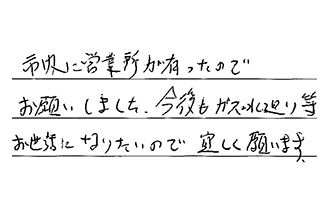 市内に営業所が有ったので
お願いしました、今後もガス水廻り等
お世話になりたいので 宜しく願います、